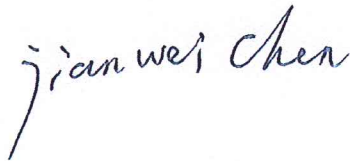 jianwei chen